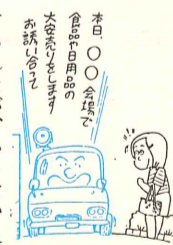 本日 〇〇 会場で
食品や日用品の
大安売りをします
お誘い合って